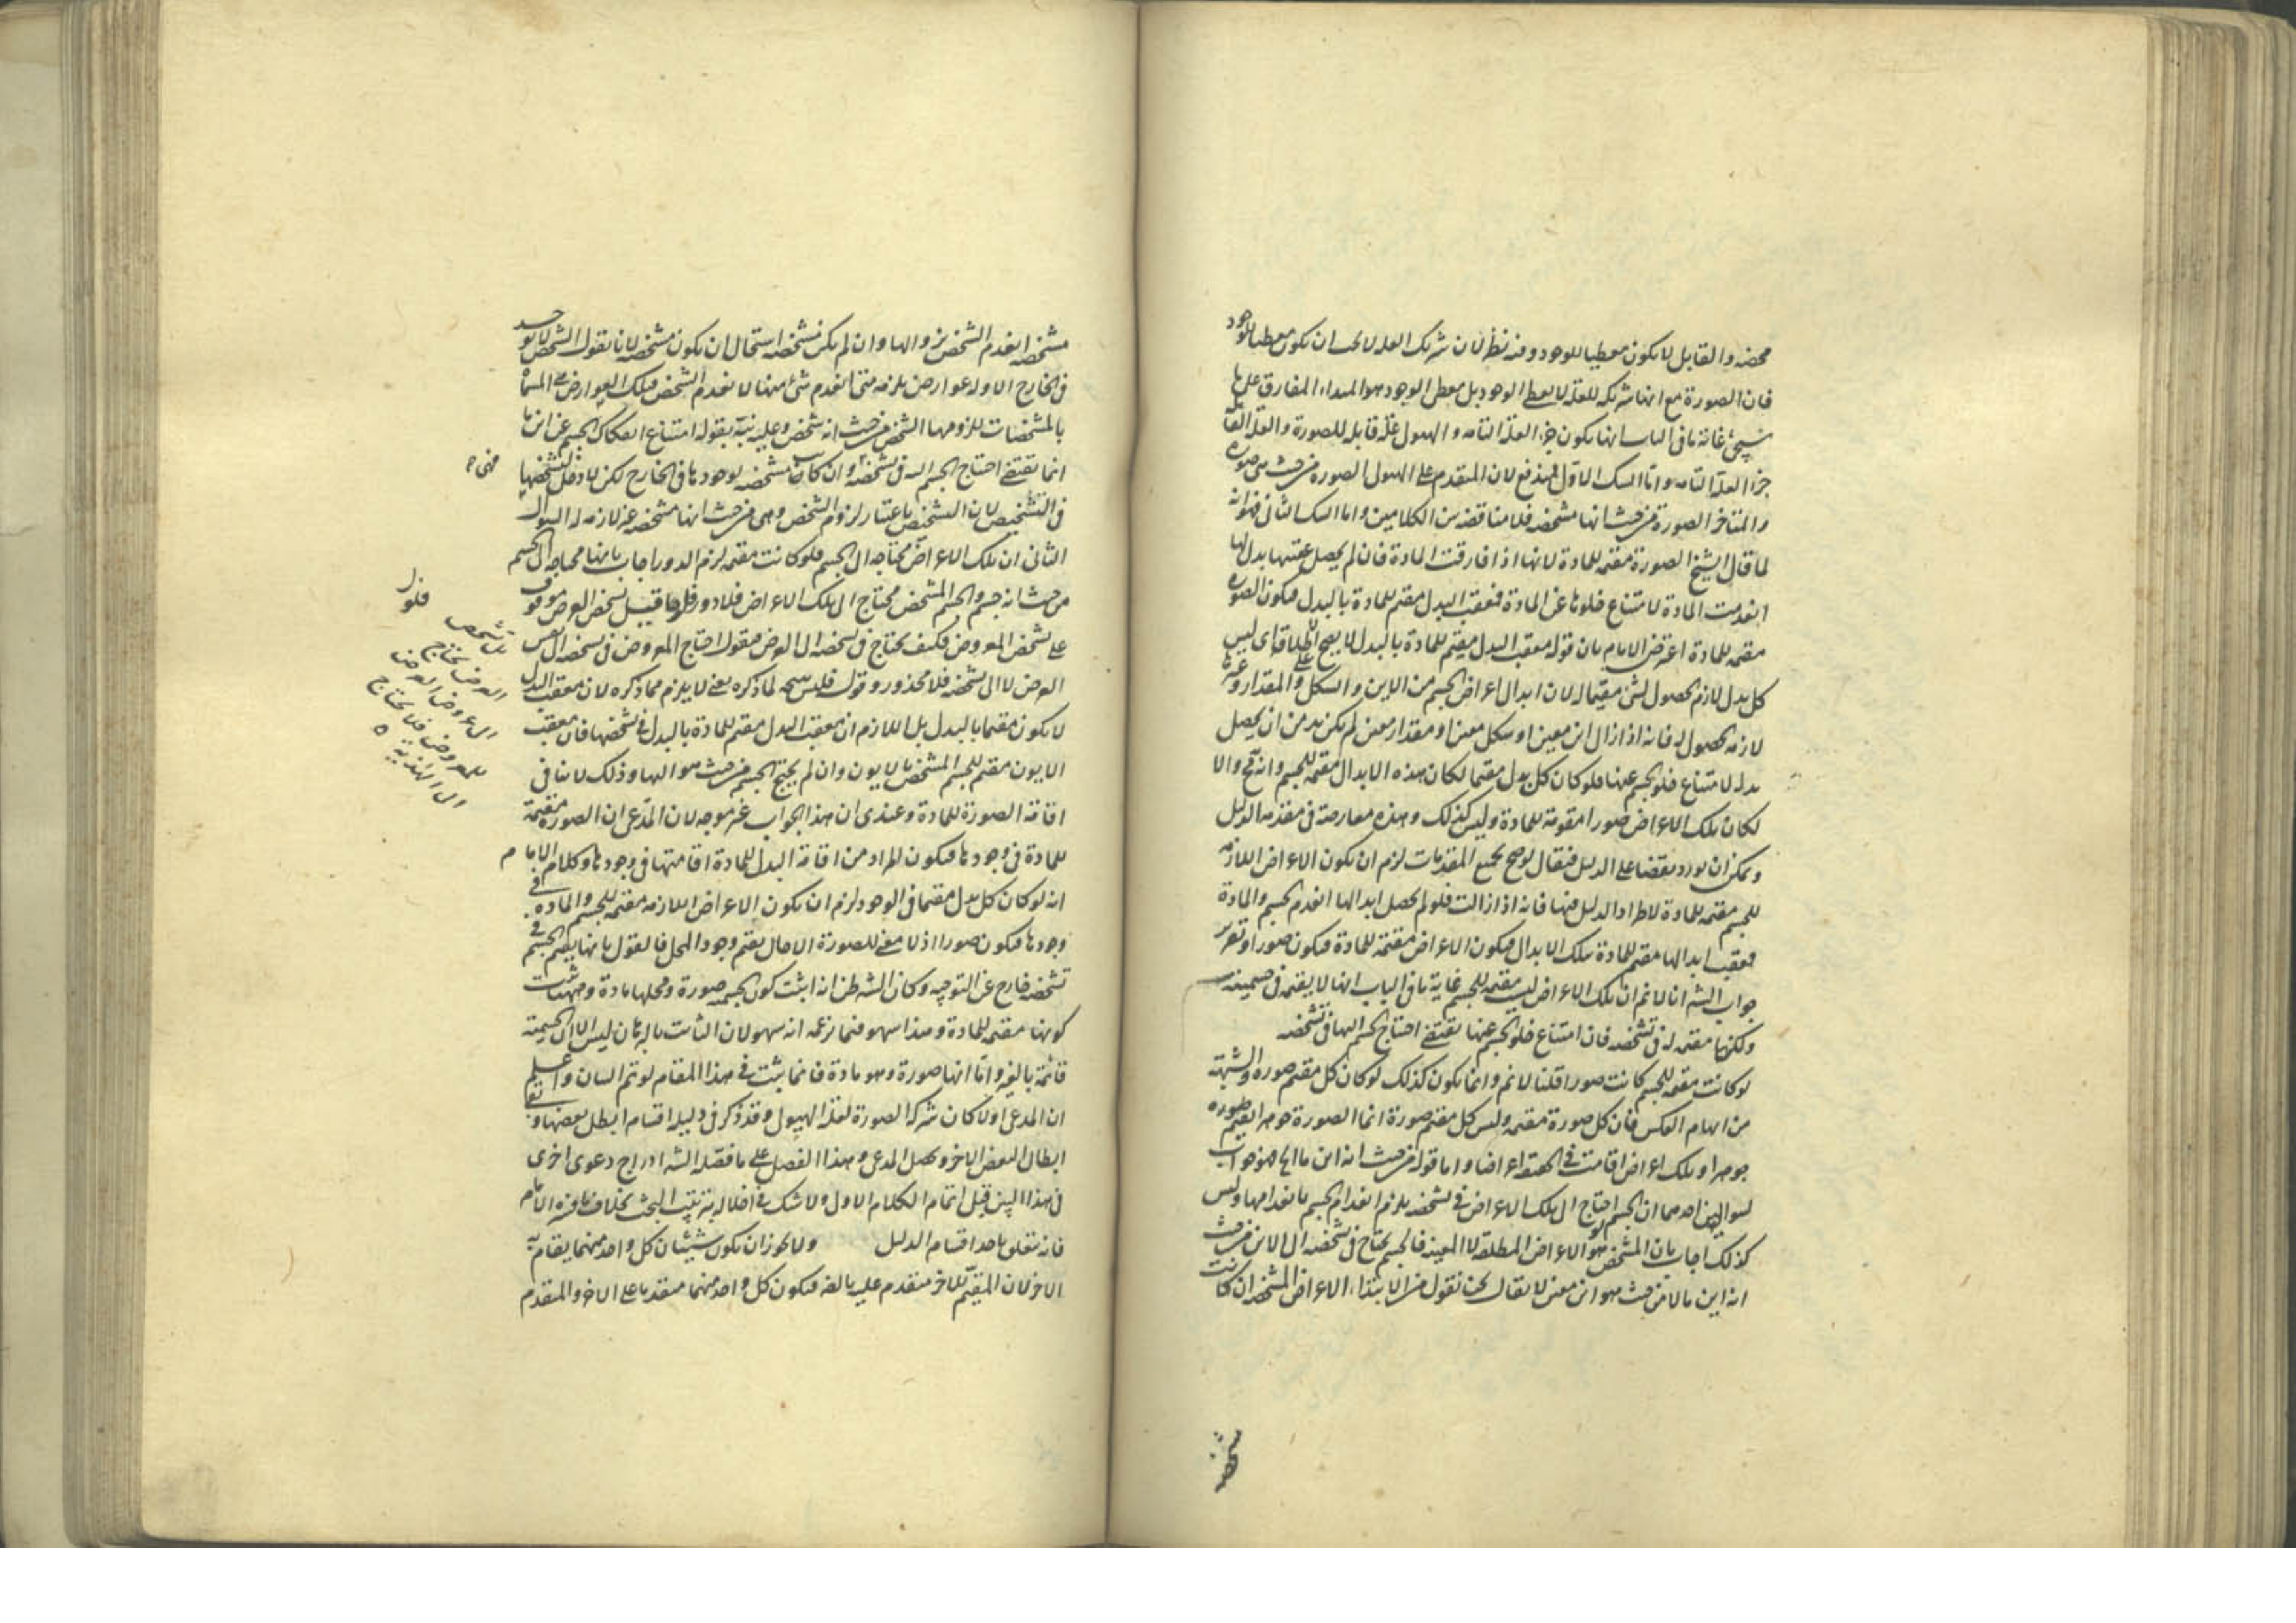 محضه والقابل لا يكون معطيا للوجود وفيه نظر لان شريك العله لا يجب ان يكون معطيا للوجود
فان الصورة مع انها شريكه للعله لا يعطى الوجود بل معطى الوجود هو المبداء المفارق على ما
سيجئ غاية ما فى الباب انها يكون جزء العلة التامه والهيولى علة قابله للصورة والعلة القابلة
جزء العلة التامه واما الشك الاول فيندفع لان المتقدم على الهيولى الصورة من حيث هى صورة
والمتاخر الصورة من حيث انها مشخصه فلا مناقضه بين الكلامين واما الشك الثانى فهو انه
لما قال الشيخ الصورة مقيمه للمادة لانها اذا فارقت المادة فان لم يحصل عقيبها بدل لها
انعدمت المادة لامتناع خلوها عن المادة فمعقب البدل مقيم للمادة بالبدل فيكون الصورة
مقيمه للمادة اعترض الامام بان قوله معقب البدل مقيم للمادة بالبدل لا يصح على اطلاقه اى ليس
كل بدل لازم الحصول لشئ مقيما له لان ابدال اعراض الجسم من الاين والشكل والمقدار وغيرها
لازمه الحصول له فانه اذا زال اين معين او شكل معين او مقدار معين لم يكن بد من ان يحصل
بدله لامتناع خلو الجسم عنها فلو كان كل بدل مقيما لكان هذه الابدال مقيمه للجسم وانه مح والا
لكان تلك الاعراض صورا مقومة للمادة وليس كذلك وهذه معارضة فى مقدمه الدليل
ويمكن ان يورد نقضا على الدليل فيقال لو صح بجميع المقدمات لزم ان يكون الاعراض اللازمه
للجسم مقيمه للمادة لاطراد الدليل فيها فانه اذا زالت فلو لم يحصل ابدالها انعدم الجسم والمادة
فمعقب ابدالها مقيم للمادة بتلك الابدال فيكون الاعراض مقيمه للمادة فيكون صورا وتقرير
جواب الشه انا لا نم ان تلك الاعراض ليست مقيمه للجسم غاية ما فى الباب انها لا يقيمه فى جسميته
ولكنها مقيمه له فى تشخصه فان امتناع خلو الجسم عنها يقتضى احتياج الجسم اليها فى تشخصه
لو كانت مقيمه للجسم كانت صورا قلنا لا نم وانما يكون كذلك لو كان كل مقيم صورة والشبهة
من ايهام العكس فان كل صورة مقيمه وليس كل مقيم صورة انما الصورة هو
جوهرا وتلك اعراض اقامت اعراضا واما قوله من حيث انه اين ما فهو جواب
لسوالين احدهما ان الجسم لو احتاج الى تلك الاعراض فى تشخصه يلزم انعدام الجسم بانعدامها وليس
كذلك اجاب بان المشخص هو الاعراض المطلقه لا المعينه فالجسم يحتاج فى تشخصه الى الاين من حيث
انه اين ما لا من حيث هو اين معين لا يقال نحن نقول من الابتداء الاعراض المشخصه ان كانت
مشخصه انعدم الشخص بزوالها وان لم يكن مشخصه استحال ان يكون مشخصه لانا نقول الشخص لا يوجد
فى الخارج الا وله عوارض يلزمه متى انعدم شئ منها لا نعدم الشخص فتلك العوارض هى المسماة
بالمشخصات للزومها الشخص من حيث انه شخص وعليه نبه بقوله امتناع انفكاك الجسم عن اين ما
انما يقتضى احتياج الجسم اليه فى تشخصه وان كانت مشخصه لوجودها فى الخارج لكن لا دخل لتشخصها
فى التشخيص لان التشخيص باعتبار لزوم الشخص وهى من حيث انها مشخصه غير لازمه له السوال
الثانى ان تلك الاعراض محتاجه الى الجسم فلو كانت مقيمه لزم الدور اجاب بانها محتاجه الى الجسم
من حيث انه جسم والجسم المشخص محتاج الى تلك الاعراض فلا دور قيل تشخص العرض موقوف
على تشخص المعروض فكيف يحتاج فى تشخصه الى العرض فيقول احتياج المعروض فى تشخصه الى نفس
العرض لا الى تشخصه فلا محذور وقوله فليس لما ذكره يعنى لا يلزم مما ذكره لان معقب البدل
لا يكون مقيما بالبدل بل اللازم ان معقب البدل مقيم للمادة بالبدل فى تشخصها فان معقب
الايون مقيم للجسم المشخص بالايون وان لم يحتج الجسم من حيث هو اليها وذلك لا ينافى
اقامة الصورة للمادة وعندى ان هذا الجواب غير موجه لان المدعى ان الصورة مقيمة
للمادة فى وجودها فيكون المراد من اقامة البدل للمادة اقامتها فى وجودها وكلام الامام
انه لو كان كل بدل مقيما فى الوجود لزم ان يكون الاعراض اللازمه مقيمه للجسم والمادة فى
وجودها فيكون صورا اذ لا معنى للصورة الا حال يقيم وجود المحل فالقول بانها يقيم الجسم فى
تشخصه خارج عن التوجيه وكان الشه ظن انه اثبت كون الجسميه صورة ومحلها مادة
كونها مقيمه للمادة وهذا سهو فيما نزعمه انه سهو لان الثابت بالبرهان ليس الا ان الجسمية
قائمة بالغير واما انها صورة وهو مادة فانما يثبت فى هذا المقام لو تم البيان واعلم
ان المدعى اولا كان شركة الصورة لعلة الهيولى وقد ذكر فى دليله اقسام ابطل بعضها وبقى
ابطال البعض الاخر ويحصل المدعى وهذا الفصل على ما فصله الشه ادراج دعوى اخرى
فى هذا البين قبل اتمام الكلام الاول ولا شك فى اخلاله بترتيب البحث بخلاف ما فسره الامام
فانه متعلق باحد اقسام الدليل ولا يجوز ان يكون شيئان كل واحد منهما يقام به
الاخر لان المقيم للاخر متقدم عليه بالضه فيكون كل واحد منهما متقدما على الاخر والمتقدم
فلو
تشخص
العرض يحتاج
العرض
للمعروض فلا يحتاج